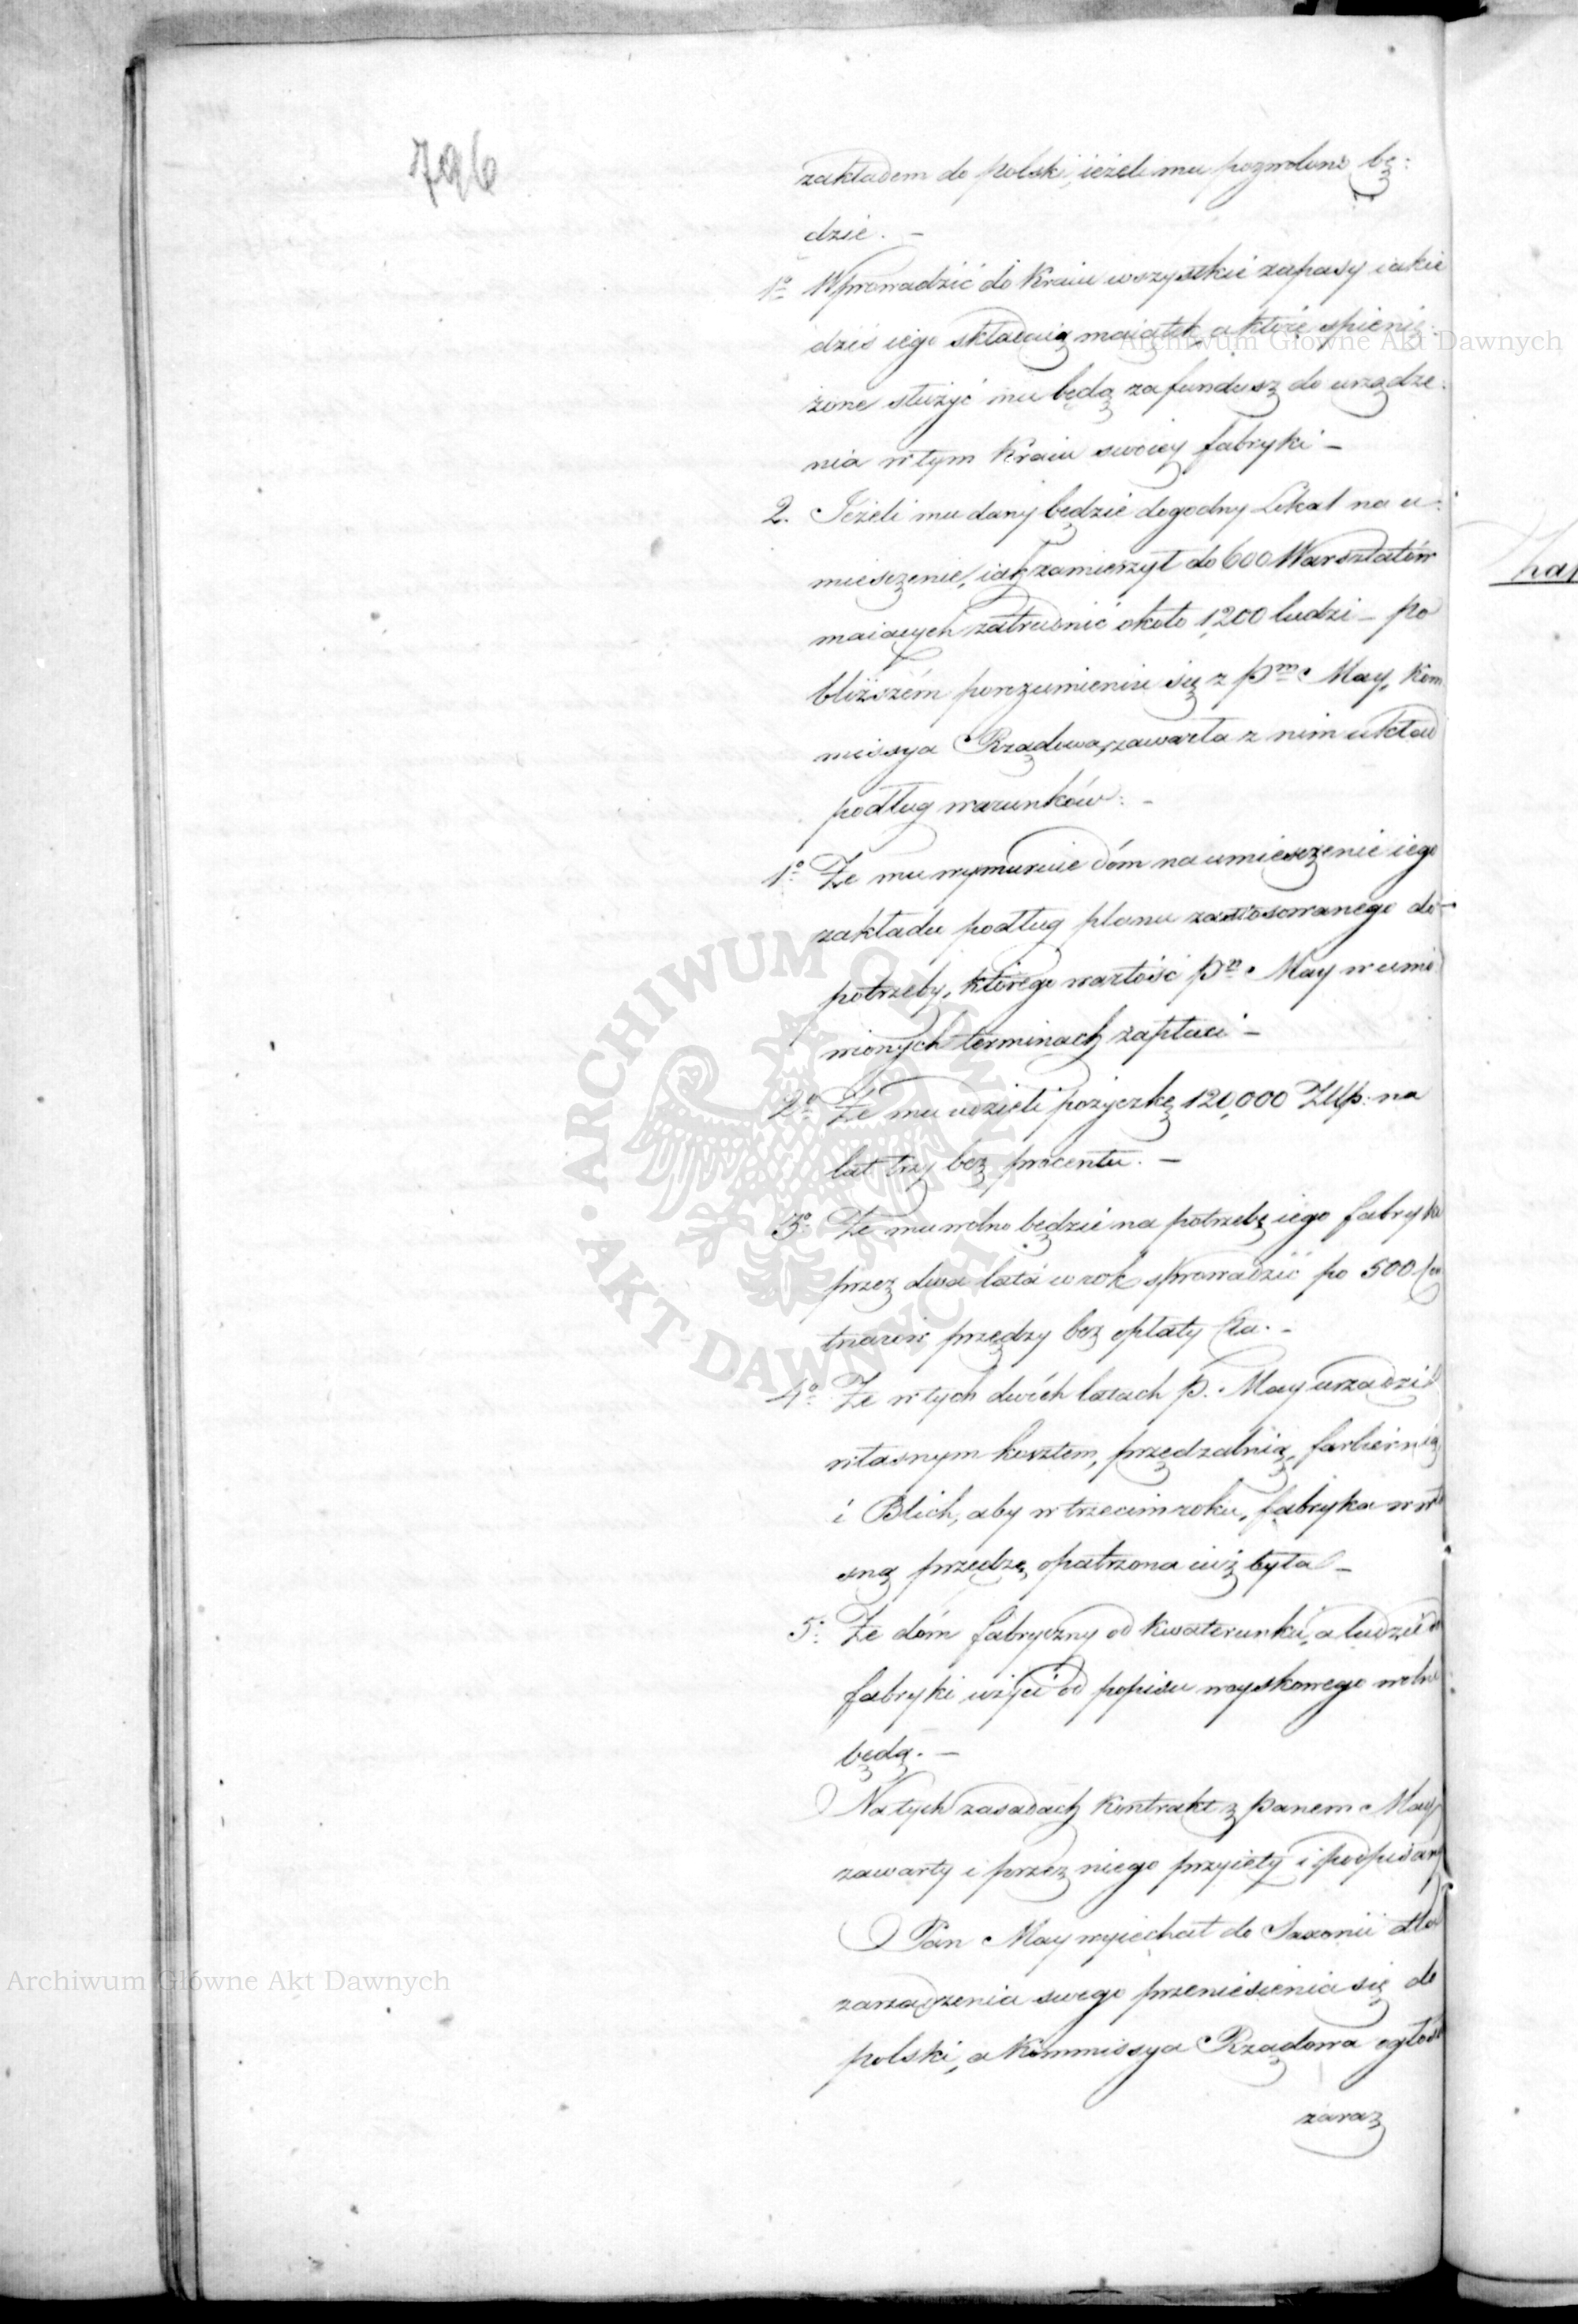 796
zakładem do Polski, ieżeli mu pozwolono bę:
dzie. –
1º Wprowadzić do Kraiu wszystkie zapasy iakie
dziś iego składaią maiątek, a które spienię:
żone służyć mu będą za fundusz do urządze:
nia w tym Kraiu swoiey fabryki –
2. Ieżeli mu dany będzie dogodny Lokal na u:
miesczenie, iak zamierzył do 600 Warsztatów
maiących zatrudnić około 1,200 ludzi – Po
bliższém porozumieniu się z Pm May, Kom
missya Rządowa, zawarła z nim układ
podług warunków: –
1º Że mu wymuruie dóm na umiesczenie iego
zakładu podług planu zastosowanego do
potrzeby, którego wartość Pn May w umó
wionych terminach zapłaci –
2º Że mu udzieli pożyczkę 120,000 Złłp. na
lat trzy bez procentu. –
3º Że mu wolno będzie na potrzebę iego fabryki
przez dwa lata w rok sprowadzić po 500 Ce
tnarów przędzy bez opłaty Cła. –
4º Że w tych dwóch latach P. May urządzi
własnym kosztem, przędzalnią, farbiernią
i Blich, aby w trzecim roku, fabryka w wła
sną przędzę opatrzona iuż była –
5º Że dóm fabryczny od kwaterunku, a ludzie do
fabryki użyci od popisu woyskowego wolni
będą. –
Na tych zasadach Kontrakt z Panem May
zawarty i przez niego przyięty i podpisany
Pan May wyiechał do Saxonii dla
zarządzenia swego przeniesienia się do
Polski, a Kommissya Rządowa ogłosi
zaraz
Archiwum Główne Akt Dawnych
Archiwum Główne Akt Dawnych
ARCHIWUM GŁÓWNE · AKT DAWNYCH ·